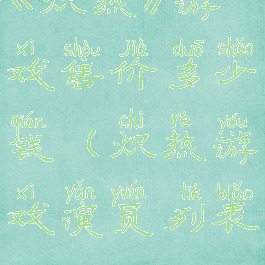 《炽热》游
xì shòu jià duō shǎo
戏售价多少
qián chì rè yóu
钱（炽热游
xì yǎn yuán liè biǎo
戏演员列表